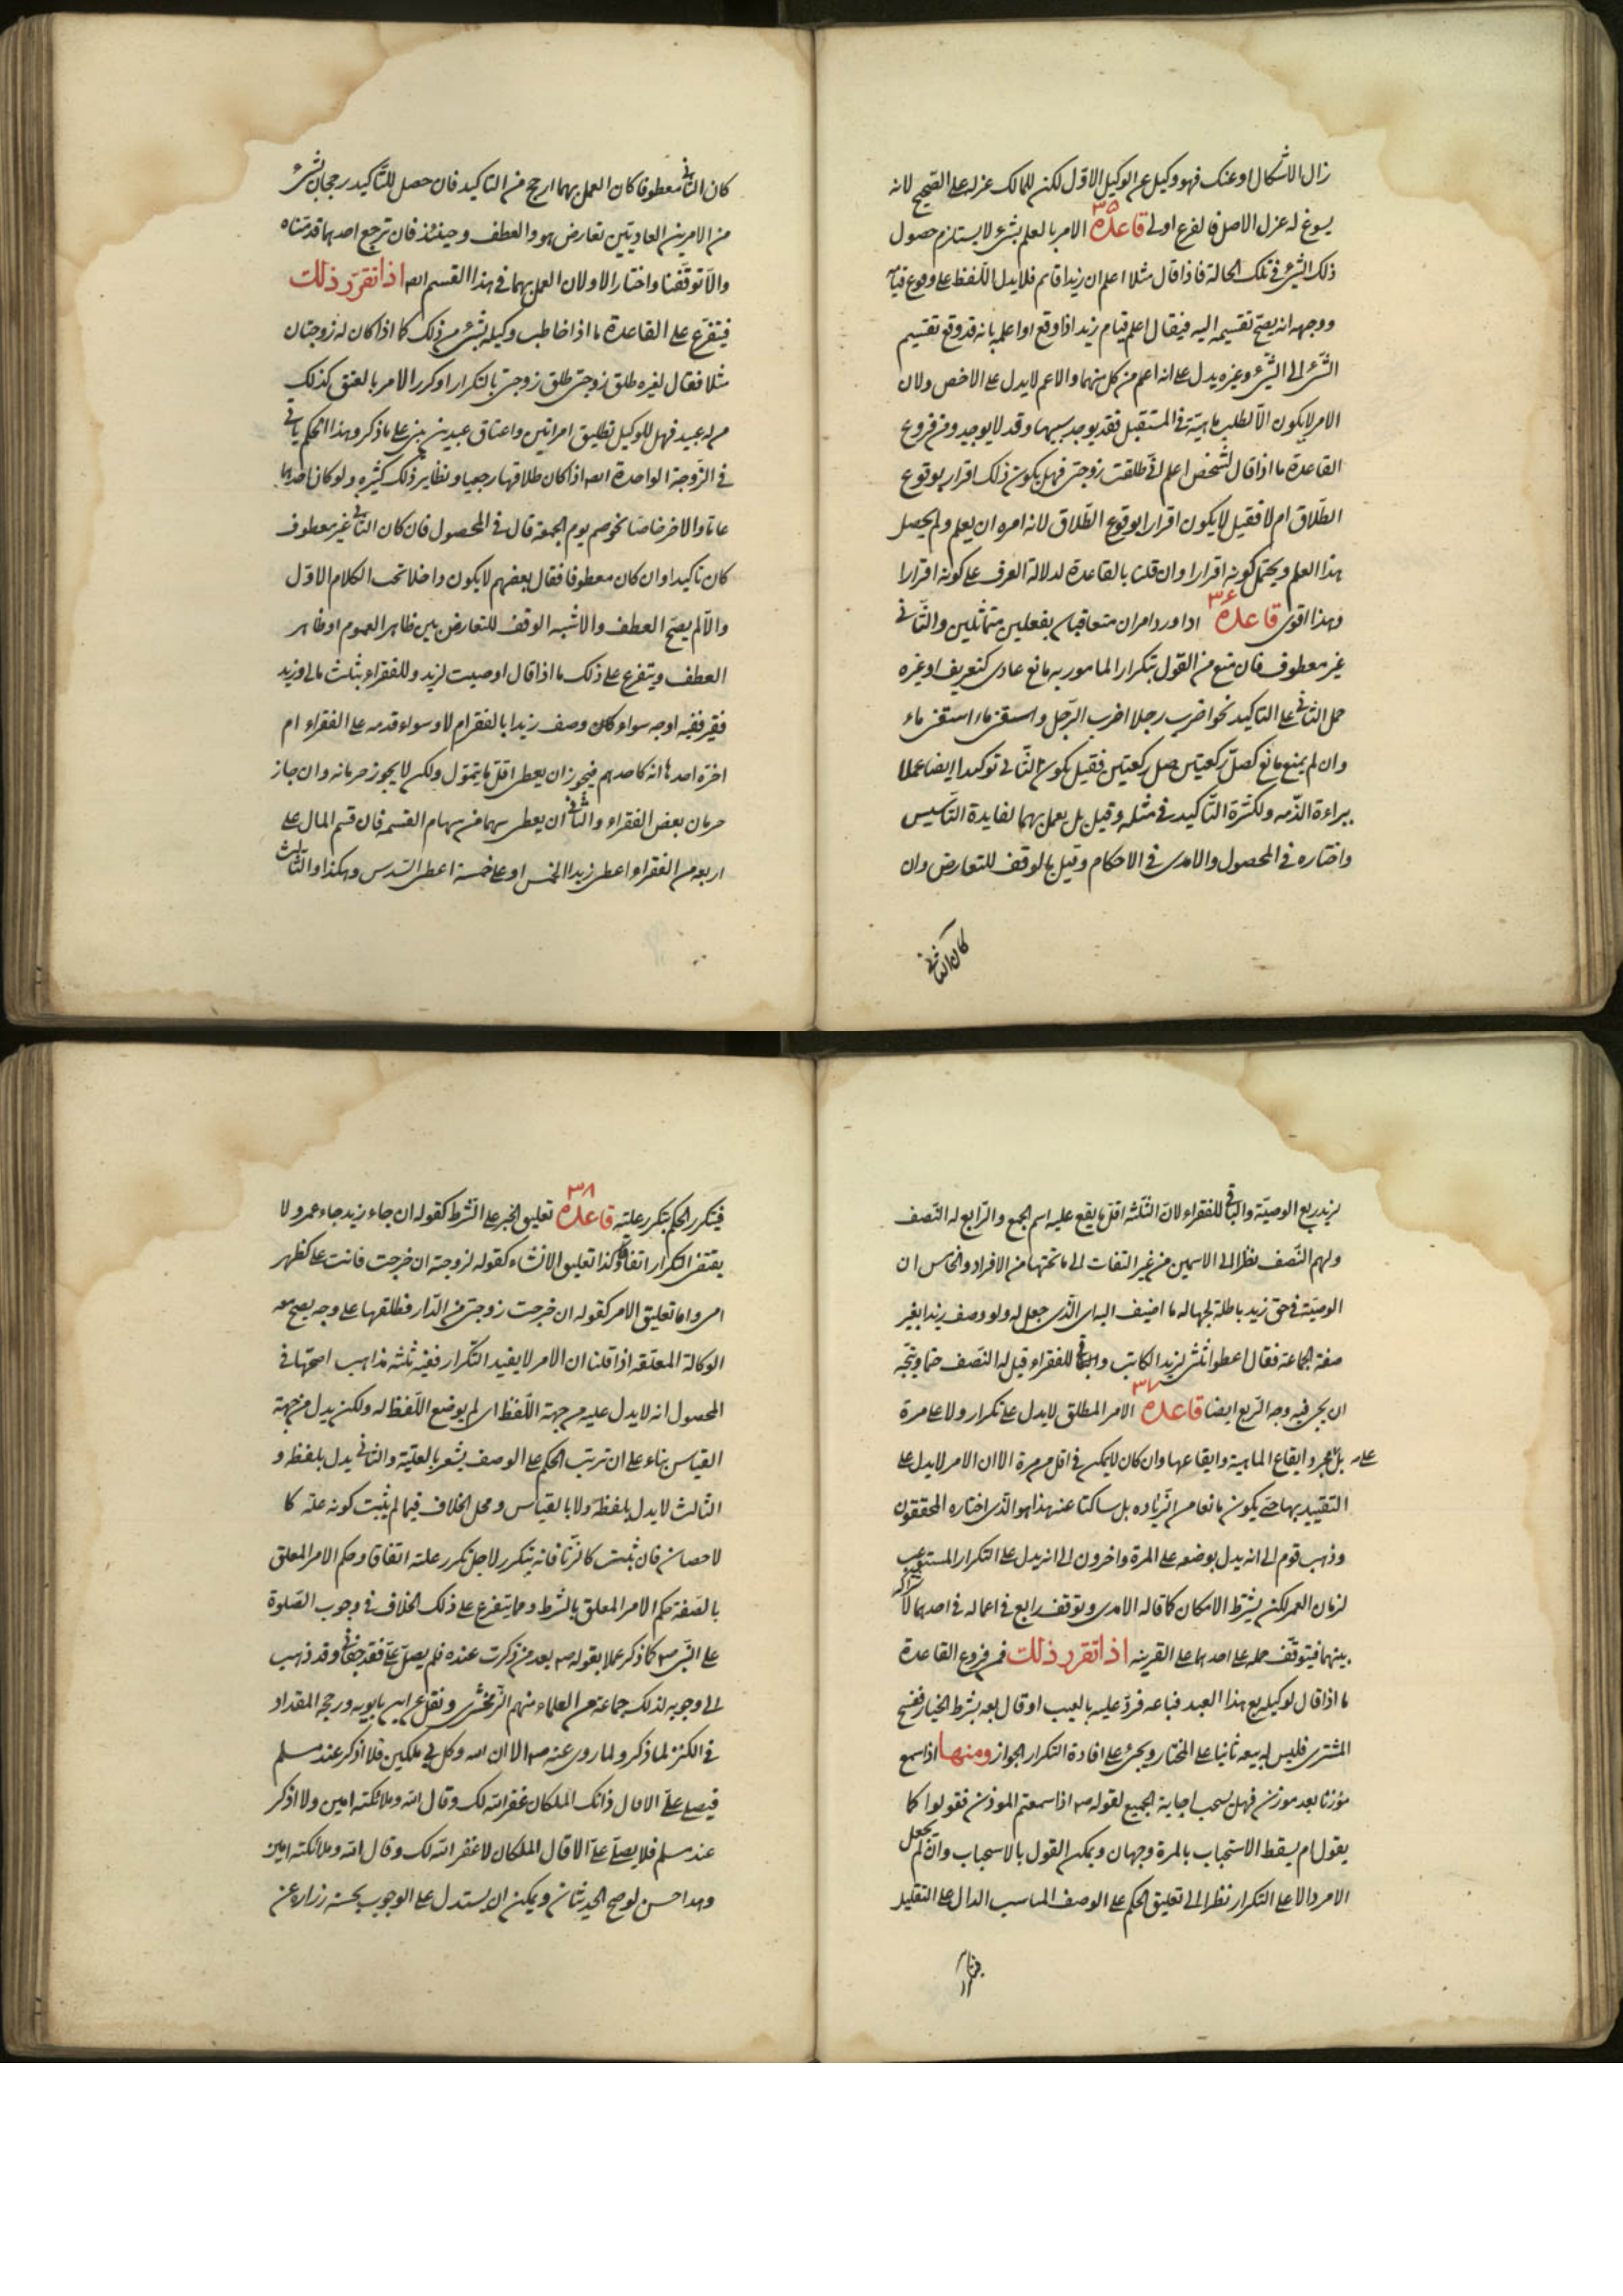 زال الاشكال او عنك فهو وكيل عن الوكيل الاول لكن للمالك عزله على الصحيح لانه
يسوغ له عزل الاصل فالفرع اولى قاعدة ٣٥ الامر بالعلم بشئ لا يستلزم حصول
ذلك الشئ فى تلك الحالة فاذا قال مثلا اعلم ان زيدا قائم فلا يدل اللفظ على وقوع قيامه
ووجهه انه يصح تقسيمه اليه فيقال اعلم قيام زيد اذا وقع او اعلم بانه قد وقع وتقسيم
الشئ الى الشئ وغيره يدل على انه اعم من كل منهما والاعم لا يدل على الاخص ولان
الامر لا يكون الا لطلب ماهية فى المستقبل فقد يوجد سببها وقد لا يوجد ومن فروع
القاعدة ما اذا قال لشخص اعلم انى طلقت زوجتى فهل يكون ذلك اقرار بوقوع
الطلاق ام لا فقيل لا يكون اقرارا بوقوع الطلاق لانه امره ان يعلم ولم يحصل
هذا العلم ويحتمل كونه اقرارا وان قلنا بالقاعدة لدلالة العرف على كونه اقرارا
وهذا اقوى قاعدة ٣٦ اذا ورد امران متعاقبان بفعلين متماثلين والثانى
غير معطوف فان منع من القول بتكرار المامور به مانع عادى كتعريف او غيره
حمل الثانى على التاكيد نحو اضرب رجلا اضرب الرجل واسقنى ماء اسقنى ماء
وان لم يمنع مانع كصل ركعتين صل ركعتين فقيل يكون الثانى توكيدا ايضا عملا
ببراءة الذمه ولكثرة التاكيد فى مثله وقيل بل يعمل بهما لفايدة التاسيس
واختاره فى المحصول والامدى فى الاحكام وقيل بالوقف للتعارض وان
كان الثانى
كان الثانى معطوفا كان العمل بهما ارجح من التاكيد فان حصل للتاكيد رجحان بشئ
من الامرين العاديتين تعارض هو والعطف وحينئذ فان ترجح احدهما قدمناه
والا توقفنا واختار الاولان العمل بهما فى هذا القسم ايضا اذا تقرر ذلك
فيتفرع على القاعدة ما اذا خاطب وكيله بشئ من ذلك كما اذا كان له زوجتان
مثلا فقال لغيره طلق زوجتى طلق زوجتى بالتكرار او كرر الامر بالعتق كذلك
من له عبيد فهل للوكيل تطليق امراتين واعتاق عبدين يبنى على ما ذكر وهذا الحكم ياتى
فى الزوجة الواحدة ايضا اذا كان طلاقها رجعيا ونظاير ذلك كثيره ولو كان احدهما
عاما والاخر خاصا نحو صم يوم الجمعة قال فى المحصول فان كان الثانى غير معطوف
كان تاكيدا وان كان معطوفا فقال بعضهم لا يكون داخلا تحت الكلام الاول
والا لم يصح العطف والاشبه الوقف للتعارض بين ظاهر العموم او ظاهر
العطف ويتفرع على ذلك ما اذا قال اوصيت لزيد وللفقراء بثلث مالى وزيد
فقير ففيه اوجه سواء كان وصف زيدا بالفقر ام لا وسواء قدمه على الفقراء ام
اخره احدها انه كاحدهم فيجوز ان يعطى اقل ما يتمول ولكن لا يجوز حرمانه وان جاز
حرمان بعض الفقراء والثانى ان يعطى سهما من سهام القسمه فان قسم المال على
اربعه من الفقراء اعطى زيدا الخمس او على خمسة اعطى السدس وهكذا والثالث
لزيد ربع الوصية والباقى للفقراء لان الثلثه اقل ما يقع عليه اسم الجمع والرابع له النصف
ولهم النصف نظرا الى الاسمين من غير التفات الى ما تحتهما من الافراد والخامس ان
الوصية فى حق زيد باطلة لجهالة ما اضيف اليه اى الذى جعل له ولو وصف زيدا بغير
صفة الجماعة فقال اعطوا ثلثى لزيد الكاتب والباقى للفقراء قيل له النصف حتما ويتجه
ان يجرى فيه وجه الربع ايضا قاعدة ٣٧ الامر المطلق لا يدل على تكرار ولا على مرة
بل على مجرد ايقاع الماهية وايقاعها وان كان لا يمكن فى اقل من مرة الا ان الامر لا يدل على
التقييد بها حتى يكون مانعا من الزياده بل ساكتا عنه هذا هو الذى اختاره المحققون
وذهب قوم الى انه يدل بوضعه على المرة واخرون الى انه يدل على التكرار المستوعب
لزمان العمر لكن بشرط الامكان كما قاله الامدى وتوقف رابع فى اعماله فى احدهما لاشتراكه
بينهما فيتوقف حمله على احدهما على القرينه اذا تقرر ذلك فمن فروع القاعدة
ما اذا قال لوكيله بع هذا العبد فباعه فرد عليه بالعيب او قال بعه بشرط الخيار ففسخ
المشترى فليس له بيعه ثانيا على المختار ويجئ على افادة التكرار الجواز ومنها اذا سمع
مؤذنا بعد مؤذن فهل يستحب اجابة الجميع لقوله ص اذا سمعتم الموذن فقولوا كما
يقول ام يسقط الاستحباب بالمرة وجهان ويمكن القول بالاستحباب وان لم نجعل
الامر دالا على التكرار نظرا الى تعليق الحكم على الوصف المناسب الدال على التقليد
فيتكرر
فيتكرر الحكم بتكرر علته قاعدة ٣٨ تعليق الخبر على الشرط كقوله ان جاء زيد جاء عمرو لا
يقتضى التكرار اتفاقا وكذا تعليق الانشاء كقوله لزوجته ان خرجت فانت على كظهر
امى واما تعليق الامر كقوله ان خرجت زوجتى من الدار فطلقها على وجه يصح معه
الوكالة المعلقه اذا قلنا ان الامر لا يفيد التكرار ففيه ثلثه مذاهب اصحها فى
المحصول انه لا يدل عليه من جهة اللفظ اى لم يوضع اللفظ له ولكن يدل من جهة
القياس بناء على ان ترتب الحكم على الوصف يشعر بالعلية والثانى يدل بلفظه و
الثالث لا يدل بلفظه ولا بالقياس ومحل الخلاف فيما لم يثبت كونه علة كا
لاحصان فان ثبت كالزنا فانه يتكرر لاجل تكرر علته اتفاقا وحكم الامر المعلق
بالصفة حكم الامر المعلق بالشرط ومما يتفرع على ذلك الخلاف فى وجوب الصلوة
على النبى ص كلما ذكر عملا بقوله ص بعد من ذكرت عنده فلم يصل على فقد جفانى وقد ذهب
الى وجوبه لذلك جماعة من العلماء منهم الزمخشرى ونقل عن ابن بابويه ورجحه المقداد
فى الكنز لما ذكر ولما روى عنه ص الا ان الله وكل بى ملكين فلا اذكر عند مسلم
فيصلى على الا قال ذانك الملكان غفر الله لك وقال الله وملائكته امين ولا اذكر
عند مسلم فلا يصلى على الا قال الملكان لا غفر الله لك وقال الله وملائكته امين
وهذا حسن لو صح الحديثان ويمكن ان يستدل على الوجوب بحسنه زراره عن